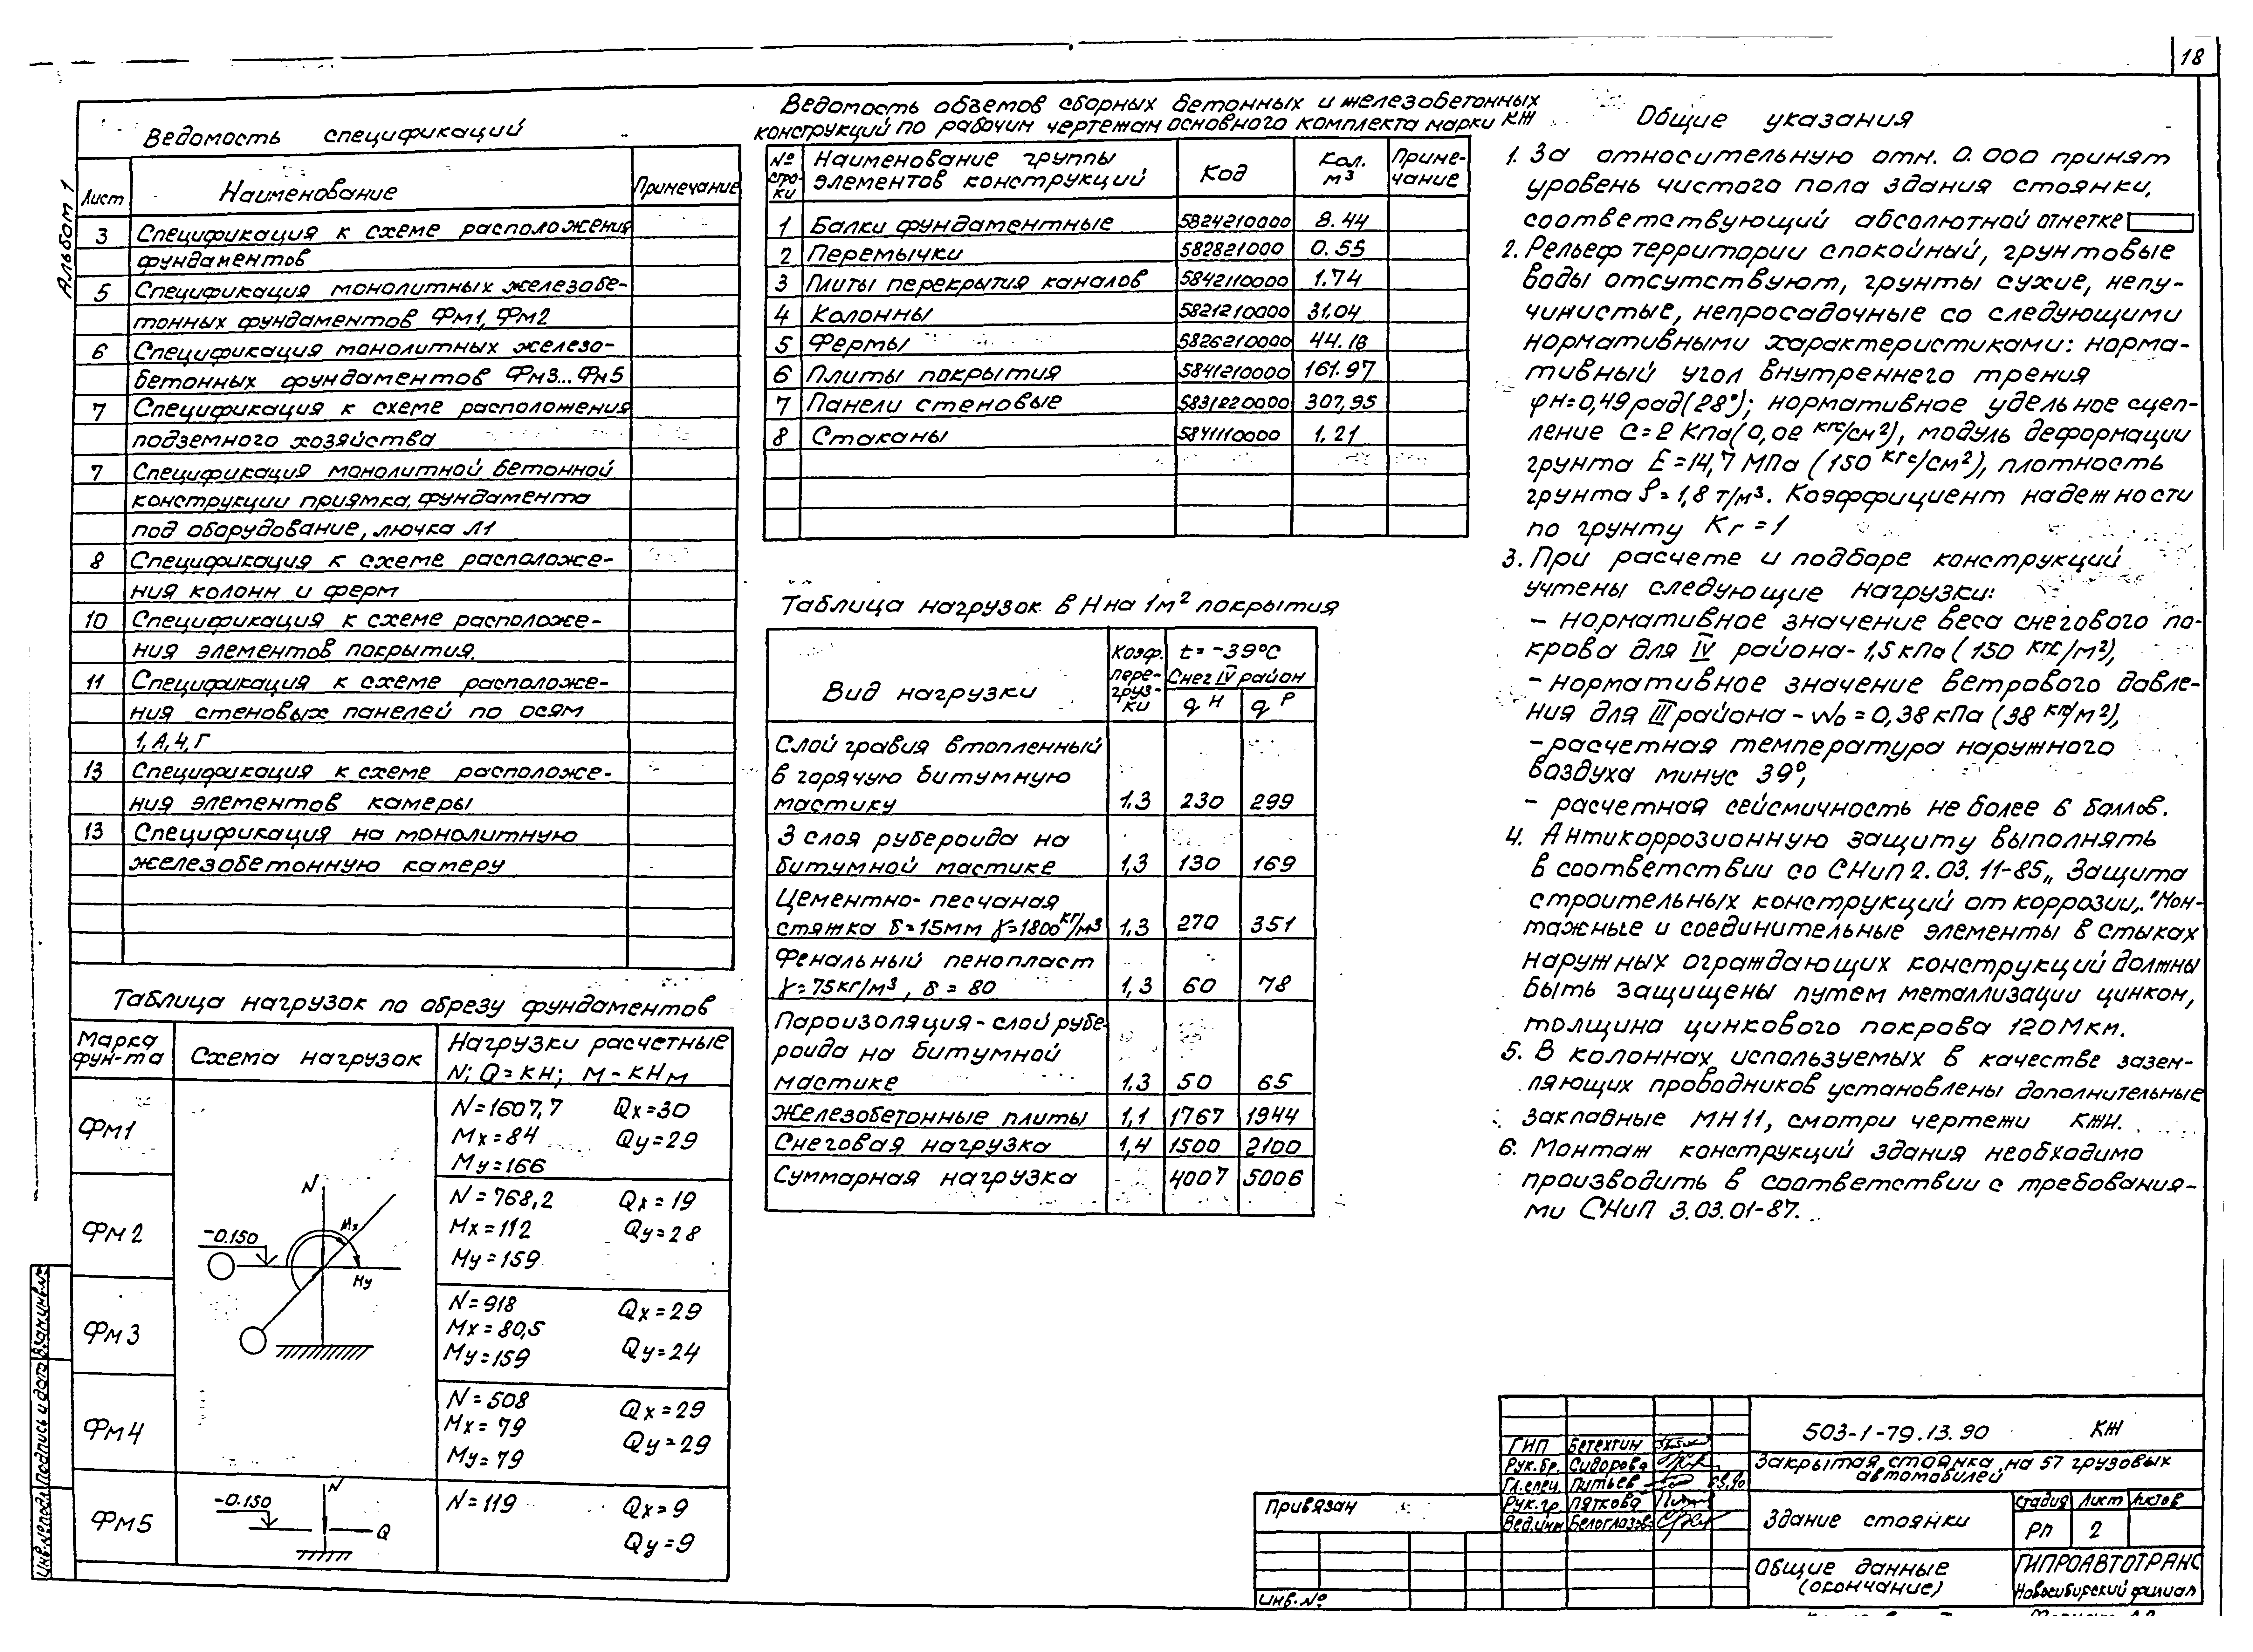 18
Альбом 1
Ведомость спецификаций
Лист Наименование Примечание
3 Спецификация к схеме расположения
фундаментов
5 Спецификация монолитных железобе-
тонных фундаментов Фм1, Фм2
6 Спецификация монолитных железо-
бетонных фундаментов Фм3...Фм5
7 Спецификация к схеме расположения
подземного хозяйства
7 Спецификация монолитной бетонной
конструкции приямка, фундамента
под оборудование, лючка Л1
8 Спецификация к схеме расположе-
ния колонн и ферм
10 Спецификация к схеме расположе-
ния элементов покрытия.
11 Спецификация к схеме расположе-
ния стеновых панелей по осям
1, А, 4, Г
13 Спецификация к схеме расположе-
ния элементов камеры
13 Спецификация на монолитную
железобетонную камеру
Таблица нагрузок по обрезу фундаментов
Марка
фун-та
Схема нагрузок
Нагрузки расчетные
N; Q = кН; М - кНм
Фм1
N=1607,7 Qx=30
Mx=84 Qy=29
My=166
Фм2
N=768,2 Qx=19
Mx=112 Qy=28
My=159
Фм3
N=918 Qx=29
Mx=80,5
My=159 Qy=24
Фм4
N=508 Qx=29
Mx=79 Qy=29
My=79
Фм5
N=119 Qx=9
Qy=9
N
Mx
-0.150
My
N
-0.150
Q
Ведомость обземов сборных бетонных и железобетонных
конструкций по рабочим чертежам основного комплекта марки КЖ
№ стро-ки Наименование группы элементов конструкций Код Кол. м³ Приме-чание
1 Балки фундаментные 5824210000 8.44
2 Перемычки 582821000 0.55
3 Плиты перекрытия каналов 5842110000 1.74
4 Колонны 5821210000 31.04
5 Фермы 5826210000 44.16
6 Плиты покрытия 5841210000 161.97
7 Панели стеновые 5831220000 307,95
8 Стаканы 5841110000 1.21
Таблица нагрузок в Н на 1м² покрытия
Вид нагрузки
Коэф. пере-груз-ки
t= -39°C
Снег IV район
q Н q Р
Слой гравия втопленный
в горячую битумную
мастику 1.3 230 299
3 слоя рубероида на
битумной мастике 1,3 130 169
Цементно-песчаная
стяжка δ=15мм γ=1800 кг/м³ 1,3 270 351
Фенальный пенопласт
γ=75кг/м³, δ = 80 1,3 60 78
Пароизоляция - слой рубе-
роида на битумной
мастике 1.3 50 65
Железобетонные плиты 1,1 1767 1944
Снеговая нагрузка 1,4 1500 2100
Суммарная нагрузка 4007 5006
Общие указания
1. За относительную отм. 0.000 принят
уровень чистого пола здания стоянки,
соответствующий абсолютной отметке
2. Рельеф территории спокойный, грунтовые
воды отсутствуют, грунты сухие, непу-
чинистые, непросадочные со следующими
нормативными характеристиками: норма-
тивный угол внутреннего трения
φн=0,49 рад (28°); нормативное удельное сцеп-
ление С=2 Кпа (0,02 кгс/см²), модуль деформации
грунта Е=14,7 МПа (150 кгс/см²), плотность
грунта ρ=1,8 т/м³. Коэффициент надежности
по грунту Кг = 1
3. При расчете и подборе конструкций
учтены следующие нагрузки:
- нормативное значение веса снегового по-
крова для IV района - 1,5 кПа (150 кгс/м²),
- нормативное значение ветрового давле-
ния для III района - Wo = 0,38 кПа (38 кг/м²),
- расчетная температура наружного
воздуха минус 39°,
- расчетная сейсмичность не более 6 баллов.
4. Антикоррозионную защиту выполнять
в соответствии со СНиП 2.03.11-85 „Защита
строительных конструкций от коррозии„." Мон-
тажные и соединительные элементы в стыках
наружных ограждающих конструкций должны
быть защищены путем металлизации цинком,
толщина цинкового покрова 120Мкм.
5. В колоннах, используемых в качестве зазем-
ляющих проводников установлены дополнительные
закладные МН11, смотри чертежи КЖН.
6. Монтаж конструкций здания необходимо
производить в соответствии с требования-
ми СНиП 3.03.01-87.
Взам.инв.№
Подпись и дата
Инв.№ подл
Привязан
Инв.№
ГИП Бетехтин
Рук.бр. Сидорова
Гл.спец. Питьев
Рук.гр. Пяткова
Вед.инж Белоглазова
503-1-79.13.90 КЖ
Закрытая стоянка на 57 грузовых
автомобилей
Здание стоянки
Стадия Лист Листов
РП 2
Общие данные
(окончание)
ГИПРОАВТОТРАНС
Новосибирский филиал